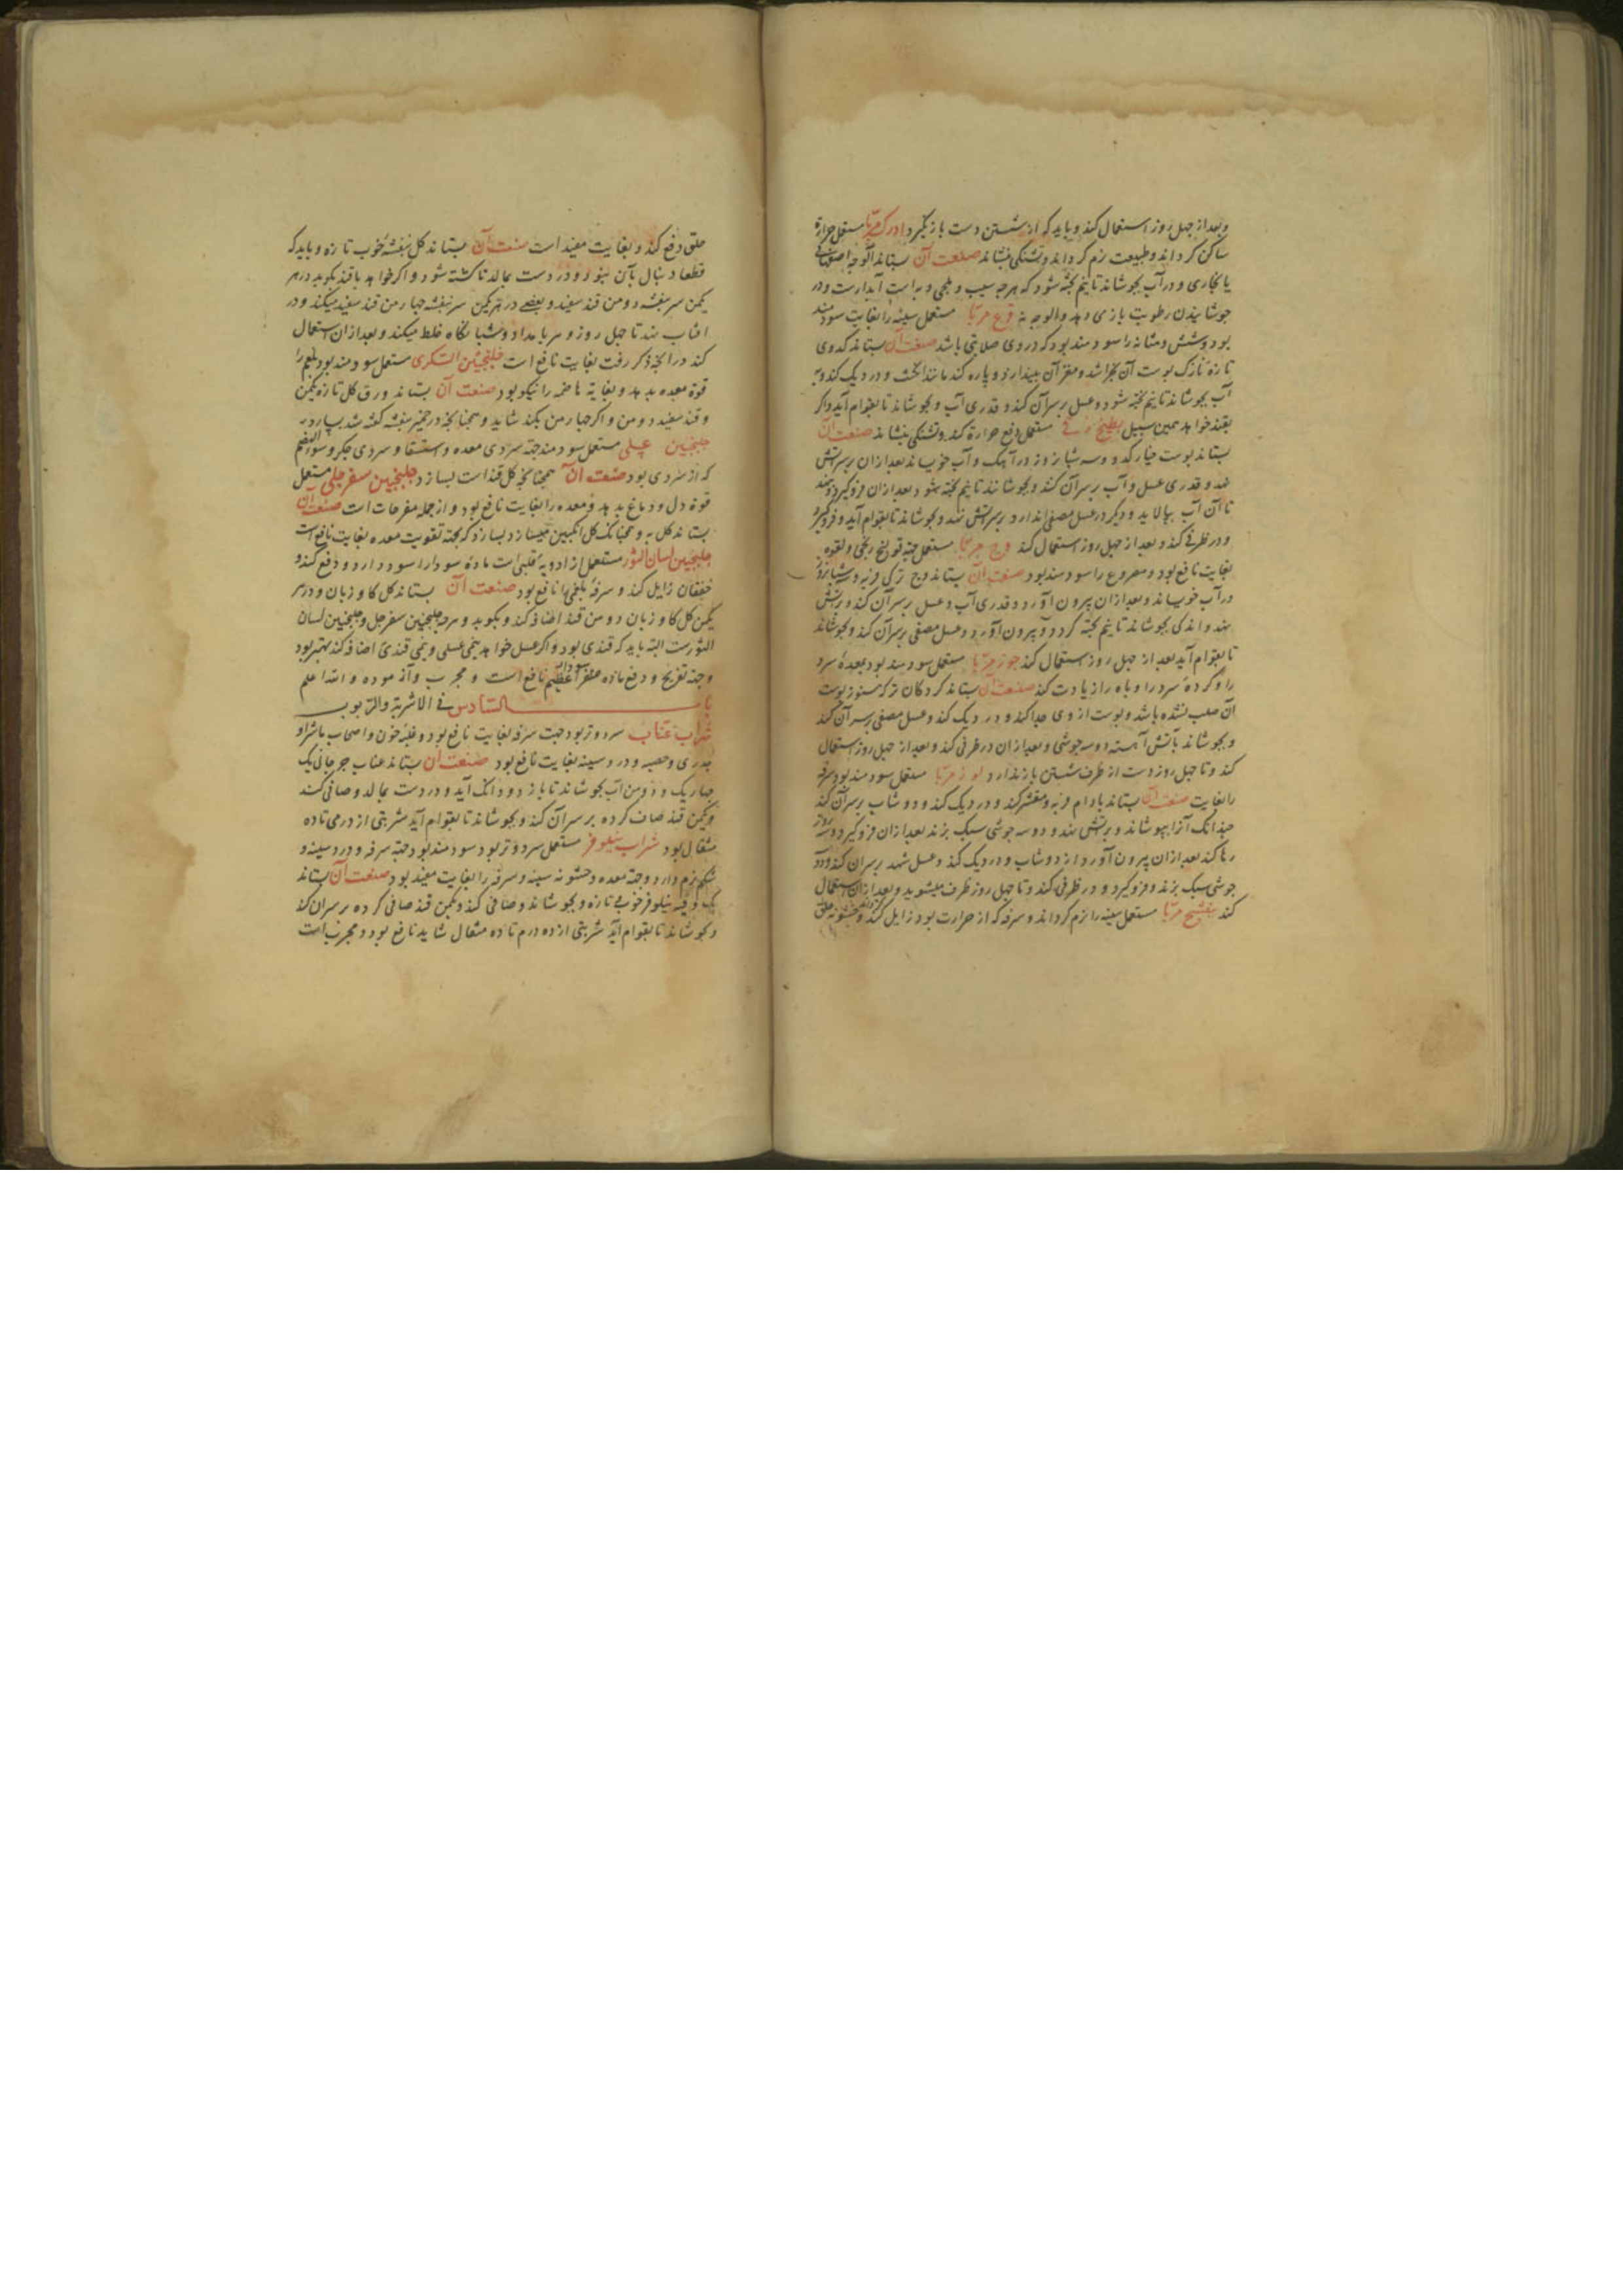 و بعد از چهل روز استعمال کند و باید که از شستن دست باز نگیرد ادرک مربا مستعمل حرارة
ساکن کرداند و طبیعت نرم کرداند و تشنکی بنشاند صنعت آن بستاند آلوجه اصفهانی
یا بخاری و در آب بجوشاند تا نیم پخته شود که هرچه سیب و به است آبدارست و در
جوشانیدن رطوبت باز می دهد و آلوجه نه قرع مربا مستعمل سینه را بغایت سودمند
بود و شش و مثانه را سودمند بود که در وی صلابتی باشد صنعت آن بستاند کدوی
تازه نازک پوست آن بخراشد و مغز آن بیندازد و پاره کند مانند انکشت و در دیک کند و به
آب بجوشاند تا نیم پخته شود و عسل بر سر آن کند و قدری آب و بجوشاند تا بقوام آید و اکر
بقند خواهد همین سبیل بطیخ رقی مستعمل دفع حرارة کند و تشنکی بنشاند صنعت آن
بستاند پوست خیار کدو و سه شبانروز در آهک و آب خویساند بعد از ان بر سر آتش
نهد و قدری عسل و آب بر سر آن کند و بجوشانند تا نیم پخته شود بعد از ان فروکیرد و بنهد
تا آن آب بپالاید و دیکر در عسل مصفی اندازد و بر سر آتش نهد و بجوشاند تا بقوام آید و فروکیرد
و در ظرفی کند و بعد از چهل روز استعمال کند وج مربا مستعمل جهة قولنج ریحی و لقوه
بغایت نافع بود و مصروع را سودمند بود صنعت آن بستاند وج ترکی فربه و سه شبانروز
در آب خویساند و بعد از ان بیرون آورد و قدری آب و عسل بر سر آن کند و بر آتش
نهد و اندکی بجوشاند تا نیم پخته کردد و بیرون آورد و عسل مصفی بر سر آن کند و بجوشاند
تا بقوام آید بعد از چهل روز استعمال کند جوز مربا مستعمل سودمند بود معدهٔ سرد
را و کردهٔ سرد را و باه را زیادت کند صنعت آن بستاند کردکان تر که هنوز پوست
آن صلب نشده باشد و پوست از وی جدا کند و در دیک کند و عسل مصفی بر سر آن کند
و بجوشاند بآتش آهسته دو سه جوشی و بعد از ان در ظرفی کند و بعد از چهل روز استعمال
کند و تا چهل روز دست از ظرف شستن باز ندارد لوز مربا مستعمل سودمند بود سرفه
را بغایت صنعت آن بستاند بادام فربه و مقشر کند و در دیک کند و دوشاب بر سر آن کند
چندانک آنرا بپوشاند و بر آتش نهد و دو سه جوشی سبک بزند بعد از ان فروکیرد و سه روز
رها کند بعد از ان بیرون آورد از دوشاب و در دیک کند و عسل شهد بر سر آن کند و دو
جوشی سبک بزند و فروکیرد و در ظرفی کند و تا چهل روز ظرف میشوید و بعد از ان استعمال
کند بنفشج مربا مستعمل سینه را نرم کرداند و سرفه که از حرارت بود زایل کند و خشونه حلق
حلق دفع کند و بغایت مفید است صنعت آن بستاند کل بنفشهٔ خوب تازه و باید که
قطعا دنبال بآن نبود و در دست بمالد تا کشته شود و اکر خواهد با قند بکوبد در هر
یکمن سر بنفشه دو من قند سفید و بعضی در هر یکمن سر بنفشه چهار من قند سفید میکند و در
افتاب نهد تا چهل روز و هر بامداد و شبانکاه غلط میکند و بعد از ان استعمال
کند در آنچه ذکر رفت بغایت نافع است جلنجبین السکری مستعمل سودمند بود بلغم را
قوة معده بدهد و بغایة هاضمه را نیکو بود صنعت آن بستاند ورق کل تازه یکمن
و قند سفید دو من و اکر چهار من بکند شاید و همچنانچه در خمیر بنفشه کفته شد بپرورد
جلنجبین عسلی مستعمل سودمند جهة سردی معده و استسقا و سردی جکر و سوء الهضم
که از سردی بود صنعت آن همچنانچه کل قند است بسازد جلنجبین سفرجلی مستعمل
قوة دل و دماغ بدهد و معده را بغایت نافع بود و از جمله مفرحات است صنعت آن
بستاند کل به و همچنانک کل انکبین میسازد بسازد که بجهة تقویت معده بغایت نافع است
جلنجبین لسان الثور مستعمل از ادویهٔ قلبی است مادهٔ سودا را سود دارد و دفع کند و
خفقان زایل کند و سرفهٔ بلغمی را نافع بود صنعت آن بستاند کل کاو زبان و در هر
یکمن کل کاو زبان دو من قند اضافه کند و بکوبد و هرچه جلنجبین سفرجل و جلنجبین لسان
الثورست البته باید که قندی بود و اکر عسل خواهد نیمی عسلی و نیمی قندی اضافه کند بهتر بود
و جهة تفریح و دفع مادهٔ سودا عظیم نافع است و مجرب و آزموده و الله اعلم
باب السادس فی الاشربة والربوب
شراب عناب سرد و تر بود جهت سرفه بغایت نافع بود و غلبهٔ خون و اصحاب ماشرا و
جدری و حصبه و درد سینه بغایت نافع بود صنعت آن بستاند عناب جرجانی یک
چهاریک و دو من آب بجوشاند تا باز دو دانک آید و در دست بمالد و صافی کند
و یکمن قند صاف کرده بر سر آن کند و بجوشاند تا بقوام آید شربتی از درمی تا ده
مثقال بود شراب نیلوفر مستعمل سرد و تر بود سودمند بود جهة سرفه و درد سینه و
شکم نرم دارد و جهة معده و خشونه سینه و سرفه را بغایت مفید بود صنعت آن بستاند
یک وقیه نیلوفر خوب تازه و بجوشاند و صافی کند و یکمن قند صافی کرده بر سر آن کند
و بجوشاند تا بقوام آید شربتی از ده درم تا ده مثقال شاید نافع بود و مجرب است